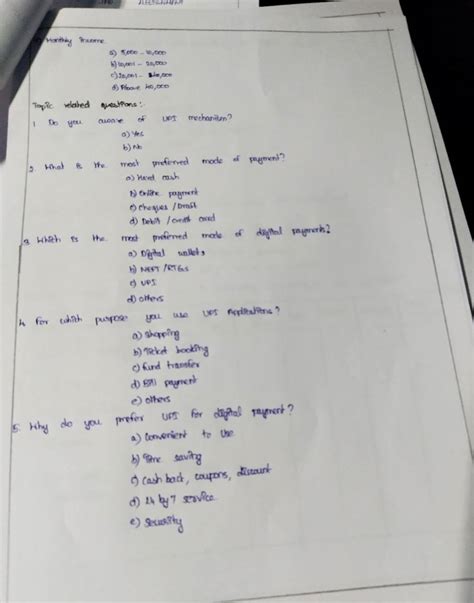 Monthly Income
a) 5,000 - 10,000
b) 10,001 - 20,000
c) 20,001 - 40,000
d) Above 40,000
Topic related questions :
1. Do you aware of UPI mechanism?
a) Yes
b) No
2. What is the most preferred mode of payment?
a) Hard cash
b) Online payment
c) Cheques / Draft
d) Debit / credit card
3. Which is the most preferred mode of digital payments?
a) Digital wallets
b) NEFT / RTGS
c) UPI
d) others
4. For which purpose you use UPI Applications?
a) Shopping
b) Ticket booking
c) fund transfer
d) Bill payment
e) others
5. Why do you prefer UPI for digital payment?
a) Convenient to use
b) Time saving
c) Cash back, coupons, discount
d) 24 by 7 service
e) Security